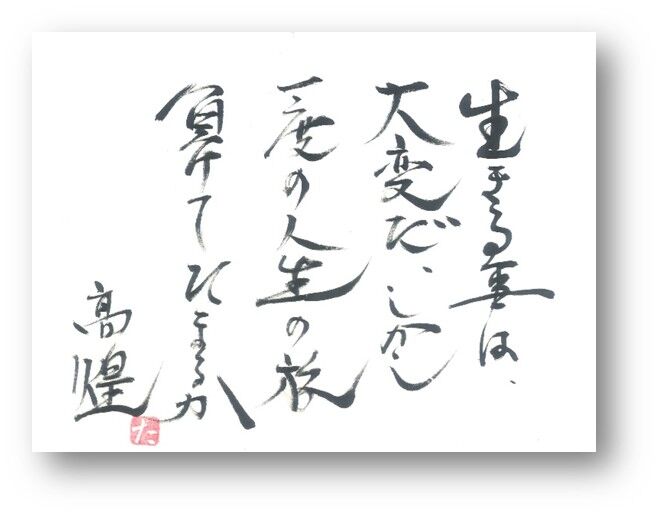 生きる事は、
大変だ、しかし
一度の人生の旅
負けてたまるか
高煌
た